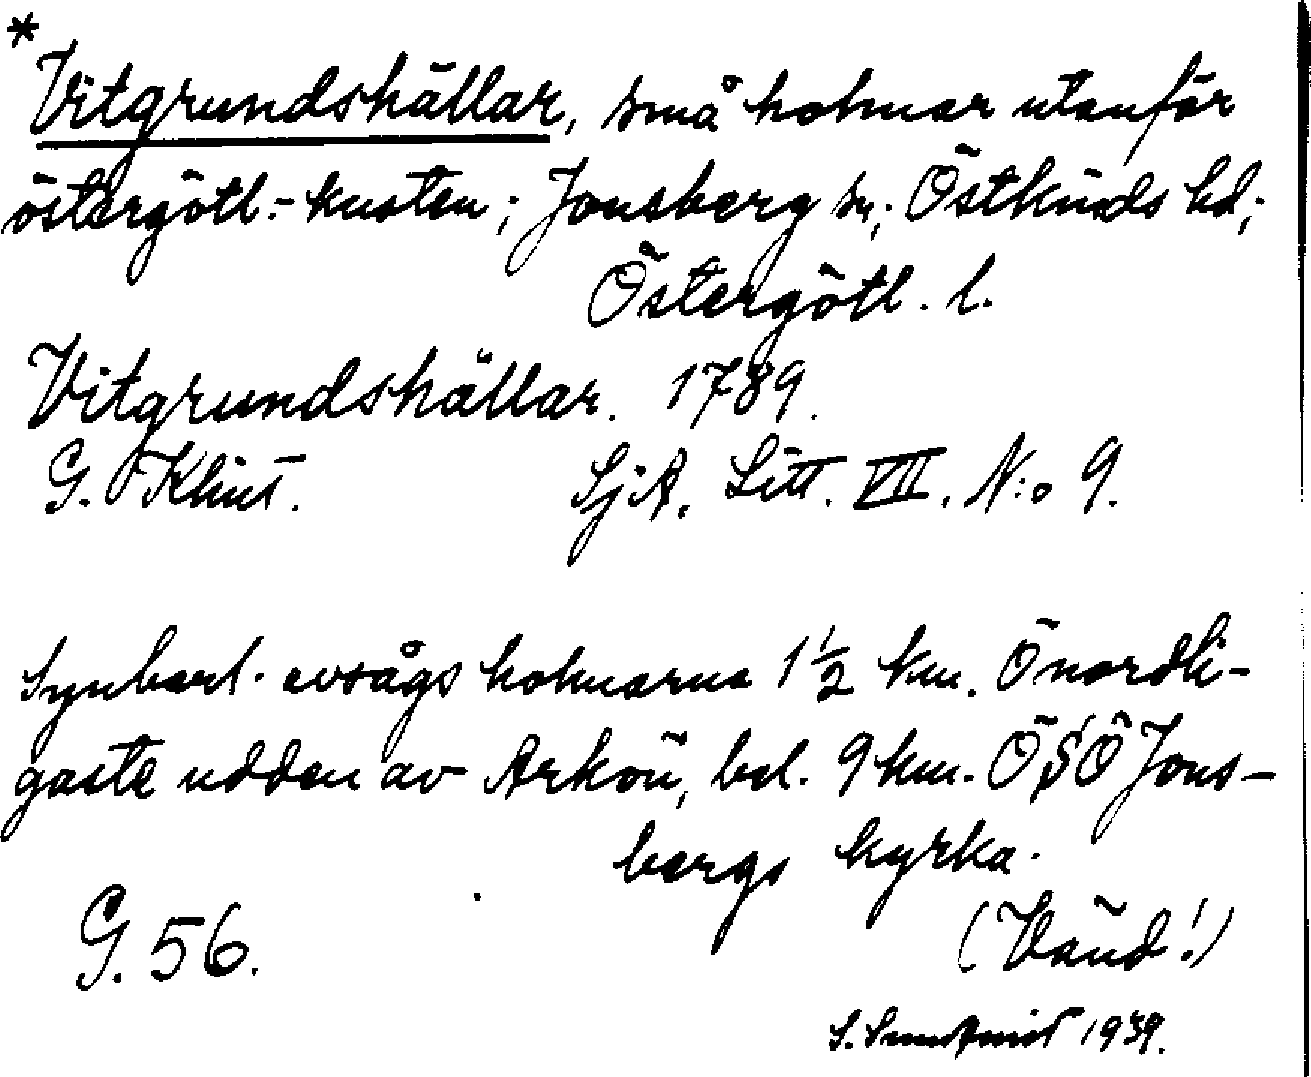 *
Vitgrundshällar, små holmar utanför
östergötl.-kusten; Jonsberg sn; Östkinds hd;
Östergötl. l.
Vitgrundshällar. 1789.
G. Klint. SjA, Litt. VII. N:o 9.
Synbarl. avsågs holmarna 1 1/2 km. Ö nordli-
gaste udden av Arkön, bel. 9 km. ÖSÖ Jons-
bergs kyrka.
G. 56. (Vänd!)
S. Sundqvist 1939.